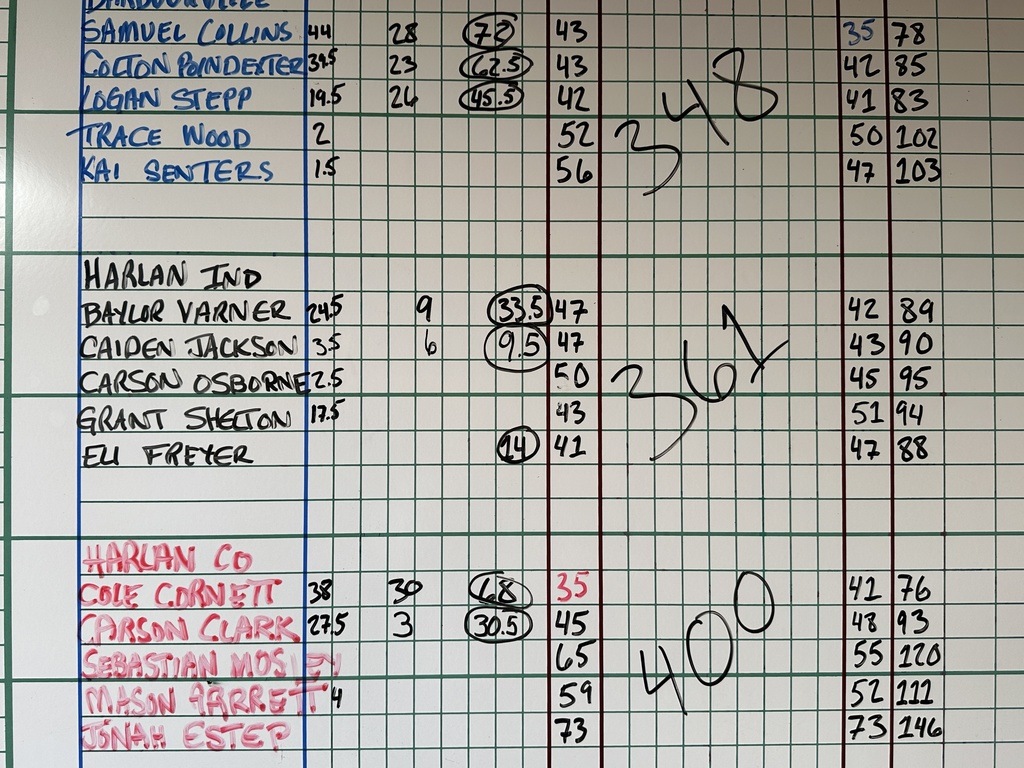 SAMUEL COLLINS 44 28 72 43 35 78
COLTON POINDEXTER 39.5 23 62.5 43 42 85
LOGAN STEPP 19.5 26 45.5 42 348 41 83
TRACE WOOD 2 52 50 102
KAI SENTERS 1.5 56 47 103
HARLAN IND
BAYLOR VARNER 24.5 9 33.5 47 42 89
CAIDEN JACKSON 3.5 6 9.5 47 43 90
CARSON OSBORNE 2.5 50 361 45 95
GRANT SHELTON 17.5 43 51 94
ELI FREYER 14 41 47 88
HARLAN CO
COLE CORNETT 38 30 68 35 41 76
CARSON CLARK 27.5 3 30.5 45 400 48 93
SEBASTIAN MOSLEY 65 55 120
MASON 4 59 52 111
JONAH ESTEP 73 73 146